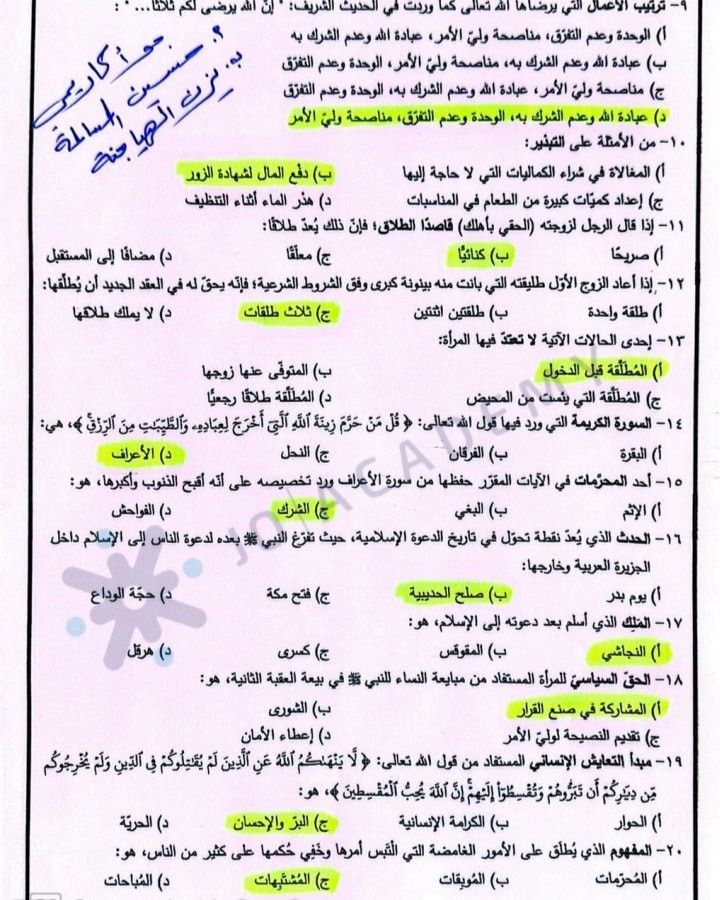 ٩- ترتيب الأعمال التي يرضاها الله تعالى كما وردت في الحديث الشريف: " إنّ الله يرضى لكم ثلاثًا... ":
أ) الوحدة وعدم التفرّق، مناصحة وليّ الأمر، عبادة الله وعدم الشرك به
ب) عبادة الله وعدم الشرك به، مناصحة وليّ الأمر، الوحدة وعدم التفرّق
ج) مناصحة وليّ الأمر، عبادة الله وعدم الشرك به، الوحدة وعدم التفرّق
د) عبادة الله وعدم الشرك به، الوحدة وعدم التفرّق، مناصحة وليّ الأمر
جو أكاديمي
أ. حسين المسالمة
أ. يزن الهياجنة
١٠- من الأمثلة على التبذير:
أ) المغالاة في شراء الكماليات التي لا حاجة إليها ب) دفع المال لشهادة الزور
ج) إعداد كميّات كبيرة من الطعام في المناسبات د) هدْر الماء أثناء التنظيف
١١- إذا قال الرجل لزوجته (الحقي بأهلك) قاصدًا الطلاق؛ فإنّ ذلك يُعدّ طلاقًا:
أ) صريحًا ب) كنائيًّا ج) معلّقًا د) مضافًا إلى المستقبل
١٢- إذا أعاد الزوج الأوّل طليقته التي بانت منه بينونة كبرى وفق الشروط الشرعية؛ فإنّه يحقّ له في العقد الجديد أن يُطلّقها:
أ) طلقة واحدة ب) طلقتين اثنتين ج) ثلاث طلقات د) لا يملك طلاقها
١٣- إحدى الحالات الآتية لا تعتدّ فيها المرأة:
أ) المُطلّقة قبل الدخول ب) المتوفّى عنها زوجها
ج) المُطلّقة التي يئست من المحيض د) المُطلّقة طلاقًا رجعيًّا
١٤- السورة الكريمة التي ورد فيها قول الله تعالى: ﴿ قُلْ مَنْ حَرَّمَ زِينَةَ اللَّهِ الَّتِي أَخْرَجَ لِعِبَادِهِ وَالطَّيِّبَاتِ مِنَ الرِّزْقِ ﴾، هي:
أ) البقرة ب) الفرقان ج) النحل د) الأعراف
١٥- أحد المحرّمات في الآيات المقرّر حفظها من سورة الأعراف ورد تخصيصه على أنّه أقبح الذنوب وأكبرها، هو:
أ) الإثم ب) البغي ج) الشرك د) الفواحش
١٦- الحدث الذي يُعدّ نقطة تحوّل في تاريخ الدعوة الإسلامية، حيث تفرّغ النبي ﷺ بعده لدعوة الناس إلى الإسلام داخل
الجزيرة العربية وخارجها:
أ) يوم بدر ب) صلح الحديبية ج) فتح مكة د) حجّة الوداع
١٧- المَلِك الذي أسلم بعد دعوته إلى الإسلام، هو:
أ) النجاشي ب) المقوقس ج) كسرى د) هرقل
١٨- الحقّ السياسيّ للمرأة المستفاد من مبايعة النساء للنبي ﷺ في بيعة العقبة الثانية، هو:
أ) المشاركة في صنع القرار ب) الشورى
ج) تقديم النصيحة لوليّ الأمر د) إعطاء الأمان
١٩- مبدأ التعايش الإنساني المستفاد من قول الله تعالى: ﴿ لَّا يَنْهَىٰكُمُ اللَّهُ عَنِ الَّذِينَ لَمْ يُقَٰتِلُوكُمْ فِي الدِّينِ وَلَمْ يُخْرِجُوكُم
مِّن دِيَٰرِكُمْ أَن تَبَرُّوهُمْ وَتُقْسِطُوٓا۟ إِلَيْهِمْ إِنَّ اللَّهَ يُحِبُّ الْمُقْسِطِينَ ﴾، هو:
أ) الحوار ب) الكرامة الإنسانية ج) البرّ والإحسان د) الحريّة
٢٠- المفهوم الذي يُطلَق على الأمور الغامضة التي الْتَبس أمرها وخَفِي حُكمها على كثير من الناس، هو:
أ) المُحرّمات ب) المُوبِقات ج) المُشتَبِهات د) المُباحات
JO ACADEMY